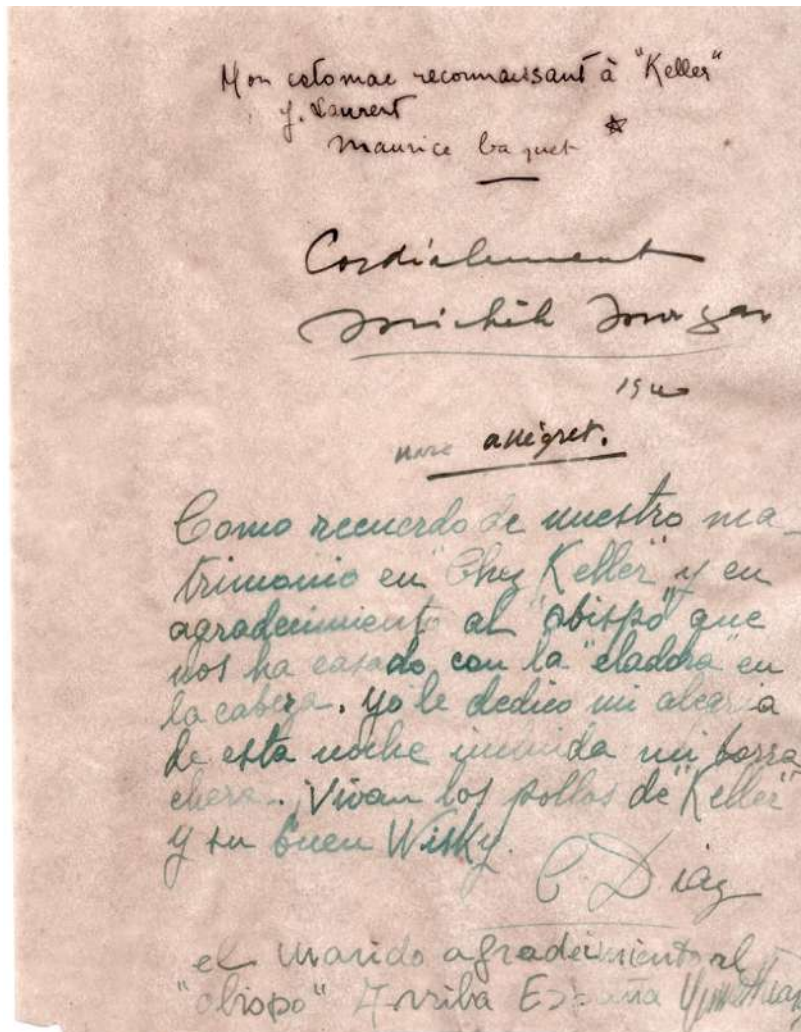 Mon estomac reconnaissant à "Keller"
J. Laurent
Maurice baquet
Cordialement
Michèle Morgan
1940
marc allégret.
Como recuerdo de nuestro ma-
trimonio en "Chez Keller" y en
agradecimiento al "obispo" que
nos ha casado con la "eladora" en
la cabeza. Yo le dedico mi alegria
de esta noche incluida mi borra
chera. ¡Vivan los pollos de "Keller"
y su buen Wisky.
C. Diaz
el marido agradecimiento al
"obispo" Arriba España